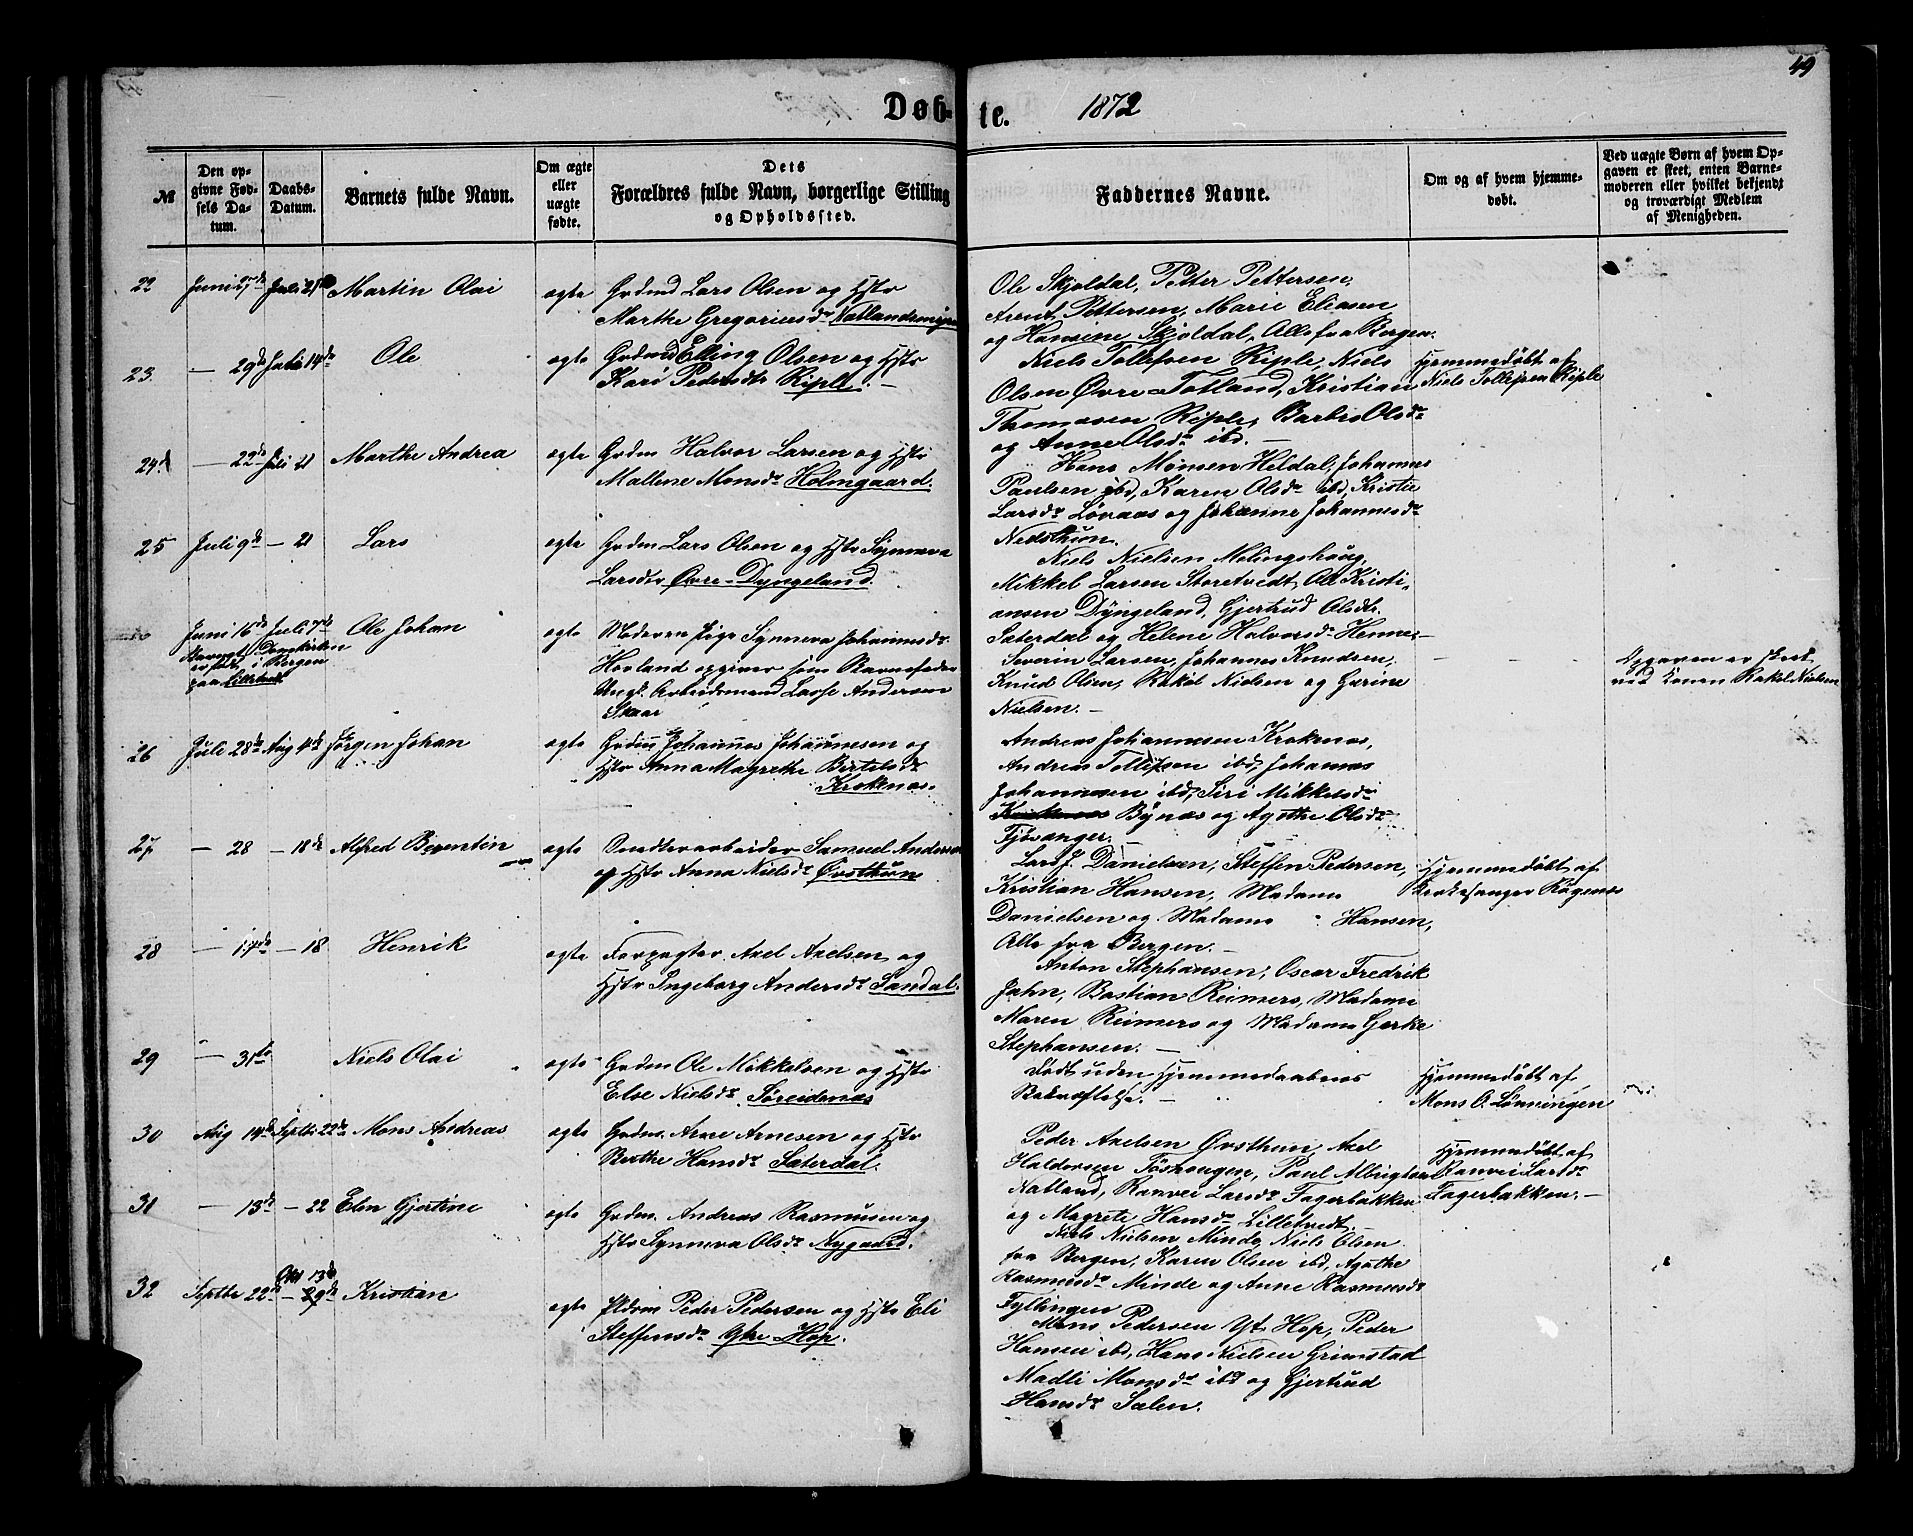 49
Døb- te. 1872
№
Den op-
givne Fød-
sels Da-
tum.
Daabs-
Datum.
Barnets fulde Navn.
Om ægte
eller
uægte
fødte.
Dets
Forældres fulde Navn, borgerlige Stilling
og Opholdssted.
Faddernes Navne.
Om og af hvem hjemme-
døbt.
Ved uægte Børn af hvem Op-
gaven er skeet, enten Barne-
moderen eller hvilket bekjendt
og troværdigt Medlem
af Menigheden.
22 Juni 27de Juli 21de Martin Olai ægte Grdmd Lars Olsen og Hstr
Marthe Gregoriusdr Natlandsmyren
Ole Skjoldal, Petter Pettersen,
Arent Pettersen, Marie Eliasen
og Hansine Skjoldal, Alle fra Bergen.
23. — 29de Juli 14de Ole ægte Grdmd Elling Olsen og Hstr
Kari Pedersdtr Riple. —
Niels Tollefsen Riple, Niels
Olsen Øvre Totland, Kristian
Thomasen Riple, Barbro Olsdr
og Anne Olsdr ibd. —
Hjemmedøbt af
Niels Tollefsen Riple
24 — 22de Juli 21 Marthe Andrea ægte Grdm Halvor Larsen og Hstr
Mallene Monsdr Holmgaard.
Hans Monsen Heldal, Johannes
Paulsen ibd, Karen Olsdr ibd, Kristie
Larsdr Løvaas og Johanne Johannesdr
Nedsthun.
25 Juli 9de — 21 Lars ægte Grdm Lars Olsen og Hstr Synneva
Larsdtr Øvre-Dyngeland.
Niels Nielsen Melingshaug,
Mikkel Larsen Storetvedt, Ole Kristi-
ansen Dyngeland, Gjertrud Olsdtr.
Sæterdal og Helene Halvorsdr Henne. —
Juni 16de Juli 7de Ole Johan ægte Moderen Pige Synneva Johannesdr
Domkirken
i Bergen
paa Lilletvedt
Hovland opgiver som Barnefader
Ungk. Arbeidsmand Lasse Andersen
Skaar
Severin Larsen, Johannes Knudsen,
Knud Olsen, Rakel Nielsen og Gurine
Nielsen. —
— —
Opgaven er skeet
ved Konen Rakel Nielsen
26 Juli 28de Aug 4de Jørgen Johan ægte Grdm Johannes Johannesen og
Hstr Anna Magrethe Bertelsdr
Kroknæs.
Andreas Johannesen Kroknæs,
Andreas Tollefsen ibd, Johannes
Johannesen ibd, Siri Mikkelsdr
Bynæs og Agathe Olsdr
Fjøsanger —
27 — 28 — 18de Alfred Bernentin ægte Smedlerarbeider Samuel Andersen
og Hstr Anna Nielsdr Øvsthun
Lars J. Danielsen, Steffen Pedersen,
Kristian Hansen, Madame
Danielsen og Madame Hansen,
Alle fra Bergen. —
Hjemmedøbt af
Kirkesanger Røgenæs
28 — 17de — 18 Henrik ægte Forpagter Axel Axelsen og
Hstr Ingeborg Andersdr Sandal.
Anton Stephansen, Oscar Fredrik
Jahn, Bastian Reimers, Madame
Maren Reimers og Madame Gerke
Stephansen. —
29 — 31te Niels Olai ægte Grdm Ole Mikkelsen og Hstr
Else Nielsdr Søreidenæs
Død uden Hjemmedaabens
Bekræftelse. —
Hjemmedøbt af
Mons O. Lønningen
30 Aug 14de Septbr 22de Mons Andreas ægte Grdm. Arne Arnesen og Hstr
Berthe Hansdr Sæterdal.
Peder Axelsen Øvsthun, Axel
Haldorsen Tøshaugen, Paul Albrigtsen
Natland, Ranvei Larsdr Fagerbakken
og Magrete Hansdr Lilletvedt. —
Hjemmedøbt af
Ranvei Larsdr
Fagerbakken. —
31 — 13de — 22 Elen Gjertine ægte Grdm. Andreas Rasmusen og
Hstr Synneva Olsdr Nygaard.
Niels Nielsen Minde, Niels Olsen
fra Bergen, Karen Olsen ibd, Agathe
Rasmusdr Minde og Anne Rasmusdr
Fyllingen
32 Septbr 22de Okt 13de — 29de Kristian ægte Pldsm Peder Pedersen og Hstr Eli
Steffensdr Ytre Hop.
Mons Pedersen Yt. Hop, Peder
Hansen ibd, Hans Nielsen Grimstad
Madli Monsdr ibd og Gjertrud
Hansdr Sælen.